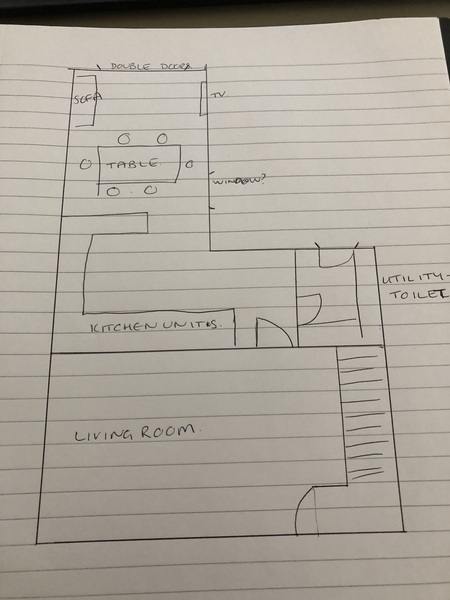 DOUBLE DOORS
SOFA
TV.
TABLE.
WINDOW?
UTILITY-
TOILET
KITCHEN UNITS.
LIVING ROOM.